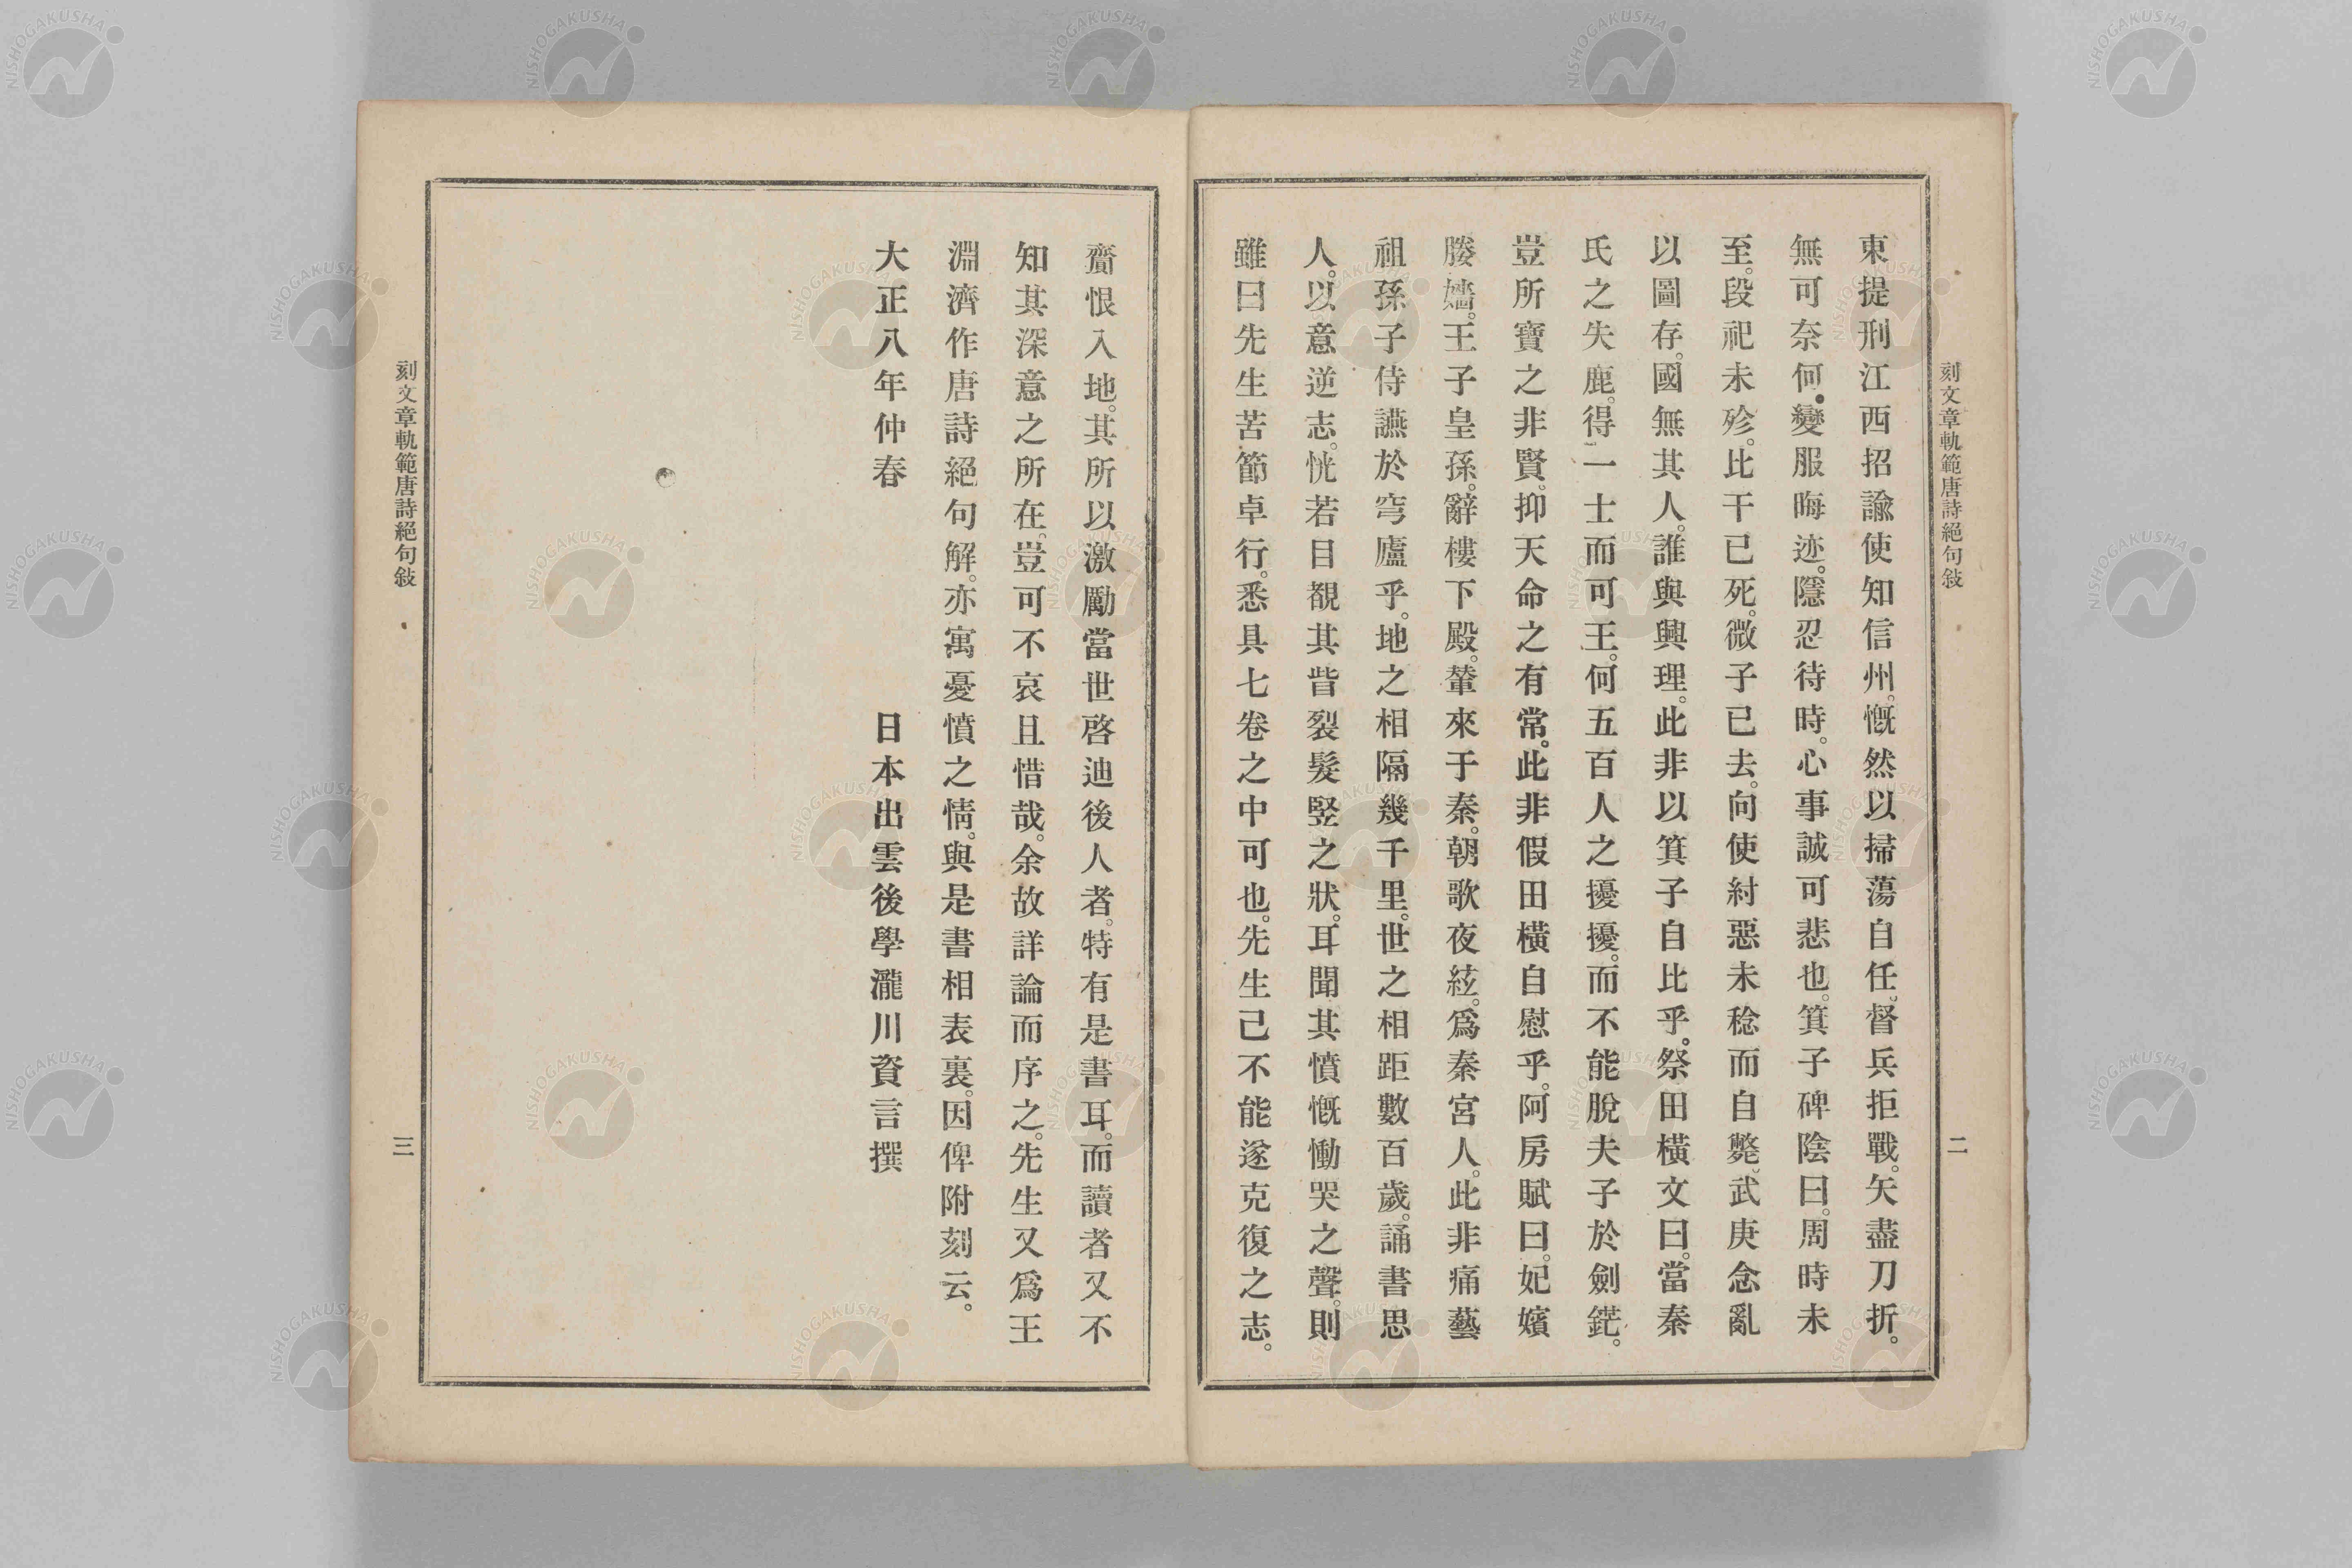 刻文章軌範唐詩絕句敍
二
東提刑江西招諭使知信州。慨然以掃蕩自任。督兵拒戰。矢盡刀折。
無可奈何。變服晦迹。隱忍待時。心事誠可悲也。箕子碑陰曰。周時未
至。段祀未殄。比干已死。微子已去。向使紂惡未稔而自斃。武庚念亂
以圖存。國無其人。誰與興理。此非以箕子自比乎。祭田橫文曰。當秦
氏之失鹿。得一士而可王。何五百人之擾擾。而不能脫夫子於劍鋩。
豈所寶之非賢。抑天命之有常。此非假田橫自慰乎。阿房賦曰。妃嬪
媵嬙。王子皇孫。辭樓下殿。輦來于秦。朝歌夜絃。爲秦宮人。此非痛藝
祖孫子侍讌於穹廬乎。地之相隔幾千里。世之相距數百歲。誦書思
人。以意逆志。恍若目覩其眥裂髮竪之狀。耳聞其憤慨慟哭之聲。則
雖曰先生苦節卓行。悉具七卷之中可也。先生己不能遂克復之志。
齎恨入地。其所以激勵當世啓迪後人者。特有是書耳。而讀者又不
知其深意之所在。豈可不哀且惜哉。余故詳論而序之。先生又爲王
淵濟作唐詩絕句解。亦寓憂憤之情。與是書相表裏。因俾附刻云。
大正八年仲春 日本出雲後學瀧川資言撰
刻文章軌範唐詩絕句敍
三
NISHOGAKUSHA